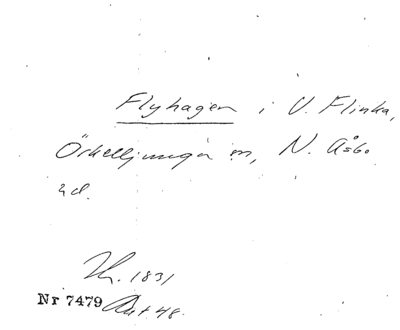 Flyhagen i V. Flinka,
Örkelljunga sn, N. Åsbo
hd.
1831
Nr 7479 Akt 48.